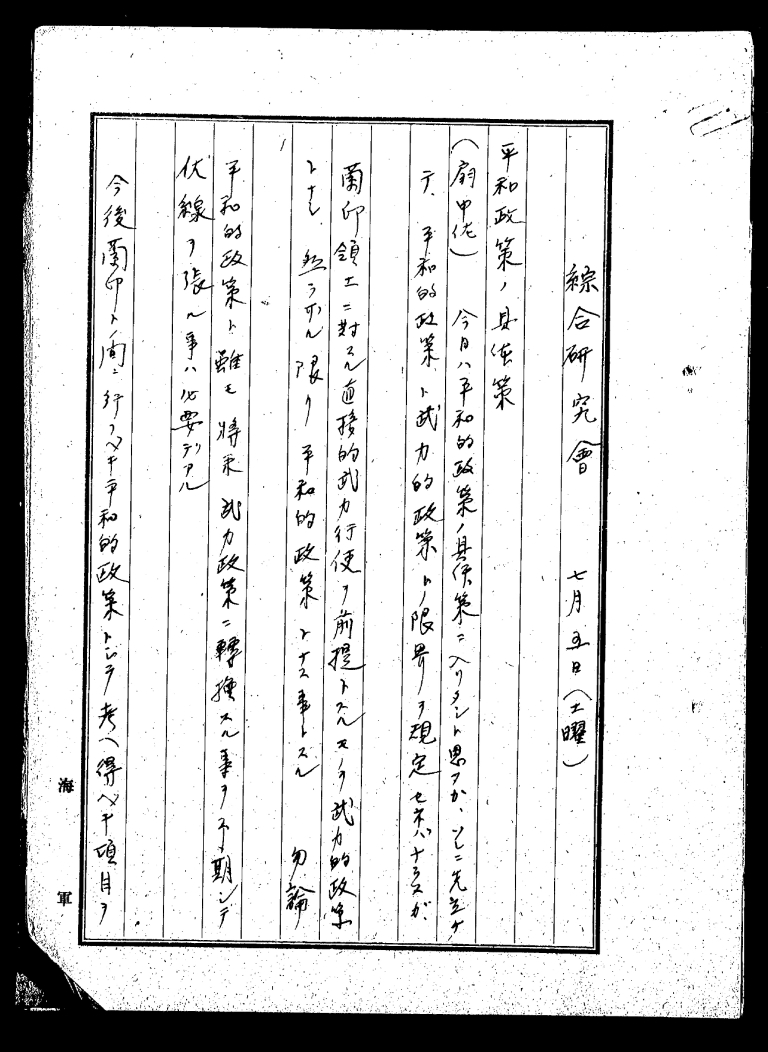 綜合研究會　七月五日(土曜)
平和政策ノ具体策
(扇中佐)　今日ハ平和的政策ノ具体策ニ入リタシト思フガ、ソレニ先立チ
テ、平和的政策ト武力的政策トノ限界ヲ規定セネバナラヌガ、
蘭印領土ニ対スル直接的武力行使ヲ前提トスルモノヲ武力的政策
トナシ、然ラザル限リ平和的政策トナス事トスル　勿論
平和的政策ト雖モ将来武力政策ニ轉換スル事ヲ予期シテ
伏線ヲ張ル事ハ必要デアル
今後蘭印トノ間ニ行フベキ平和的政策トシテ考ヘ得ベキ項目ヲ
海軍